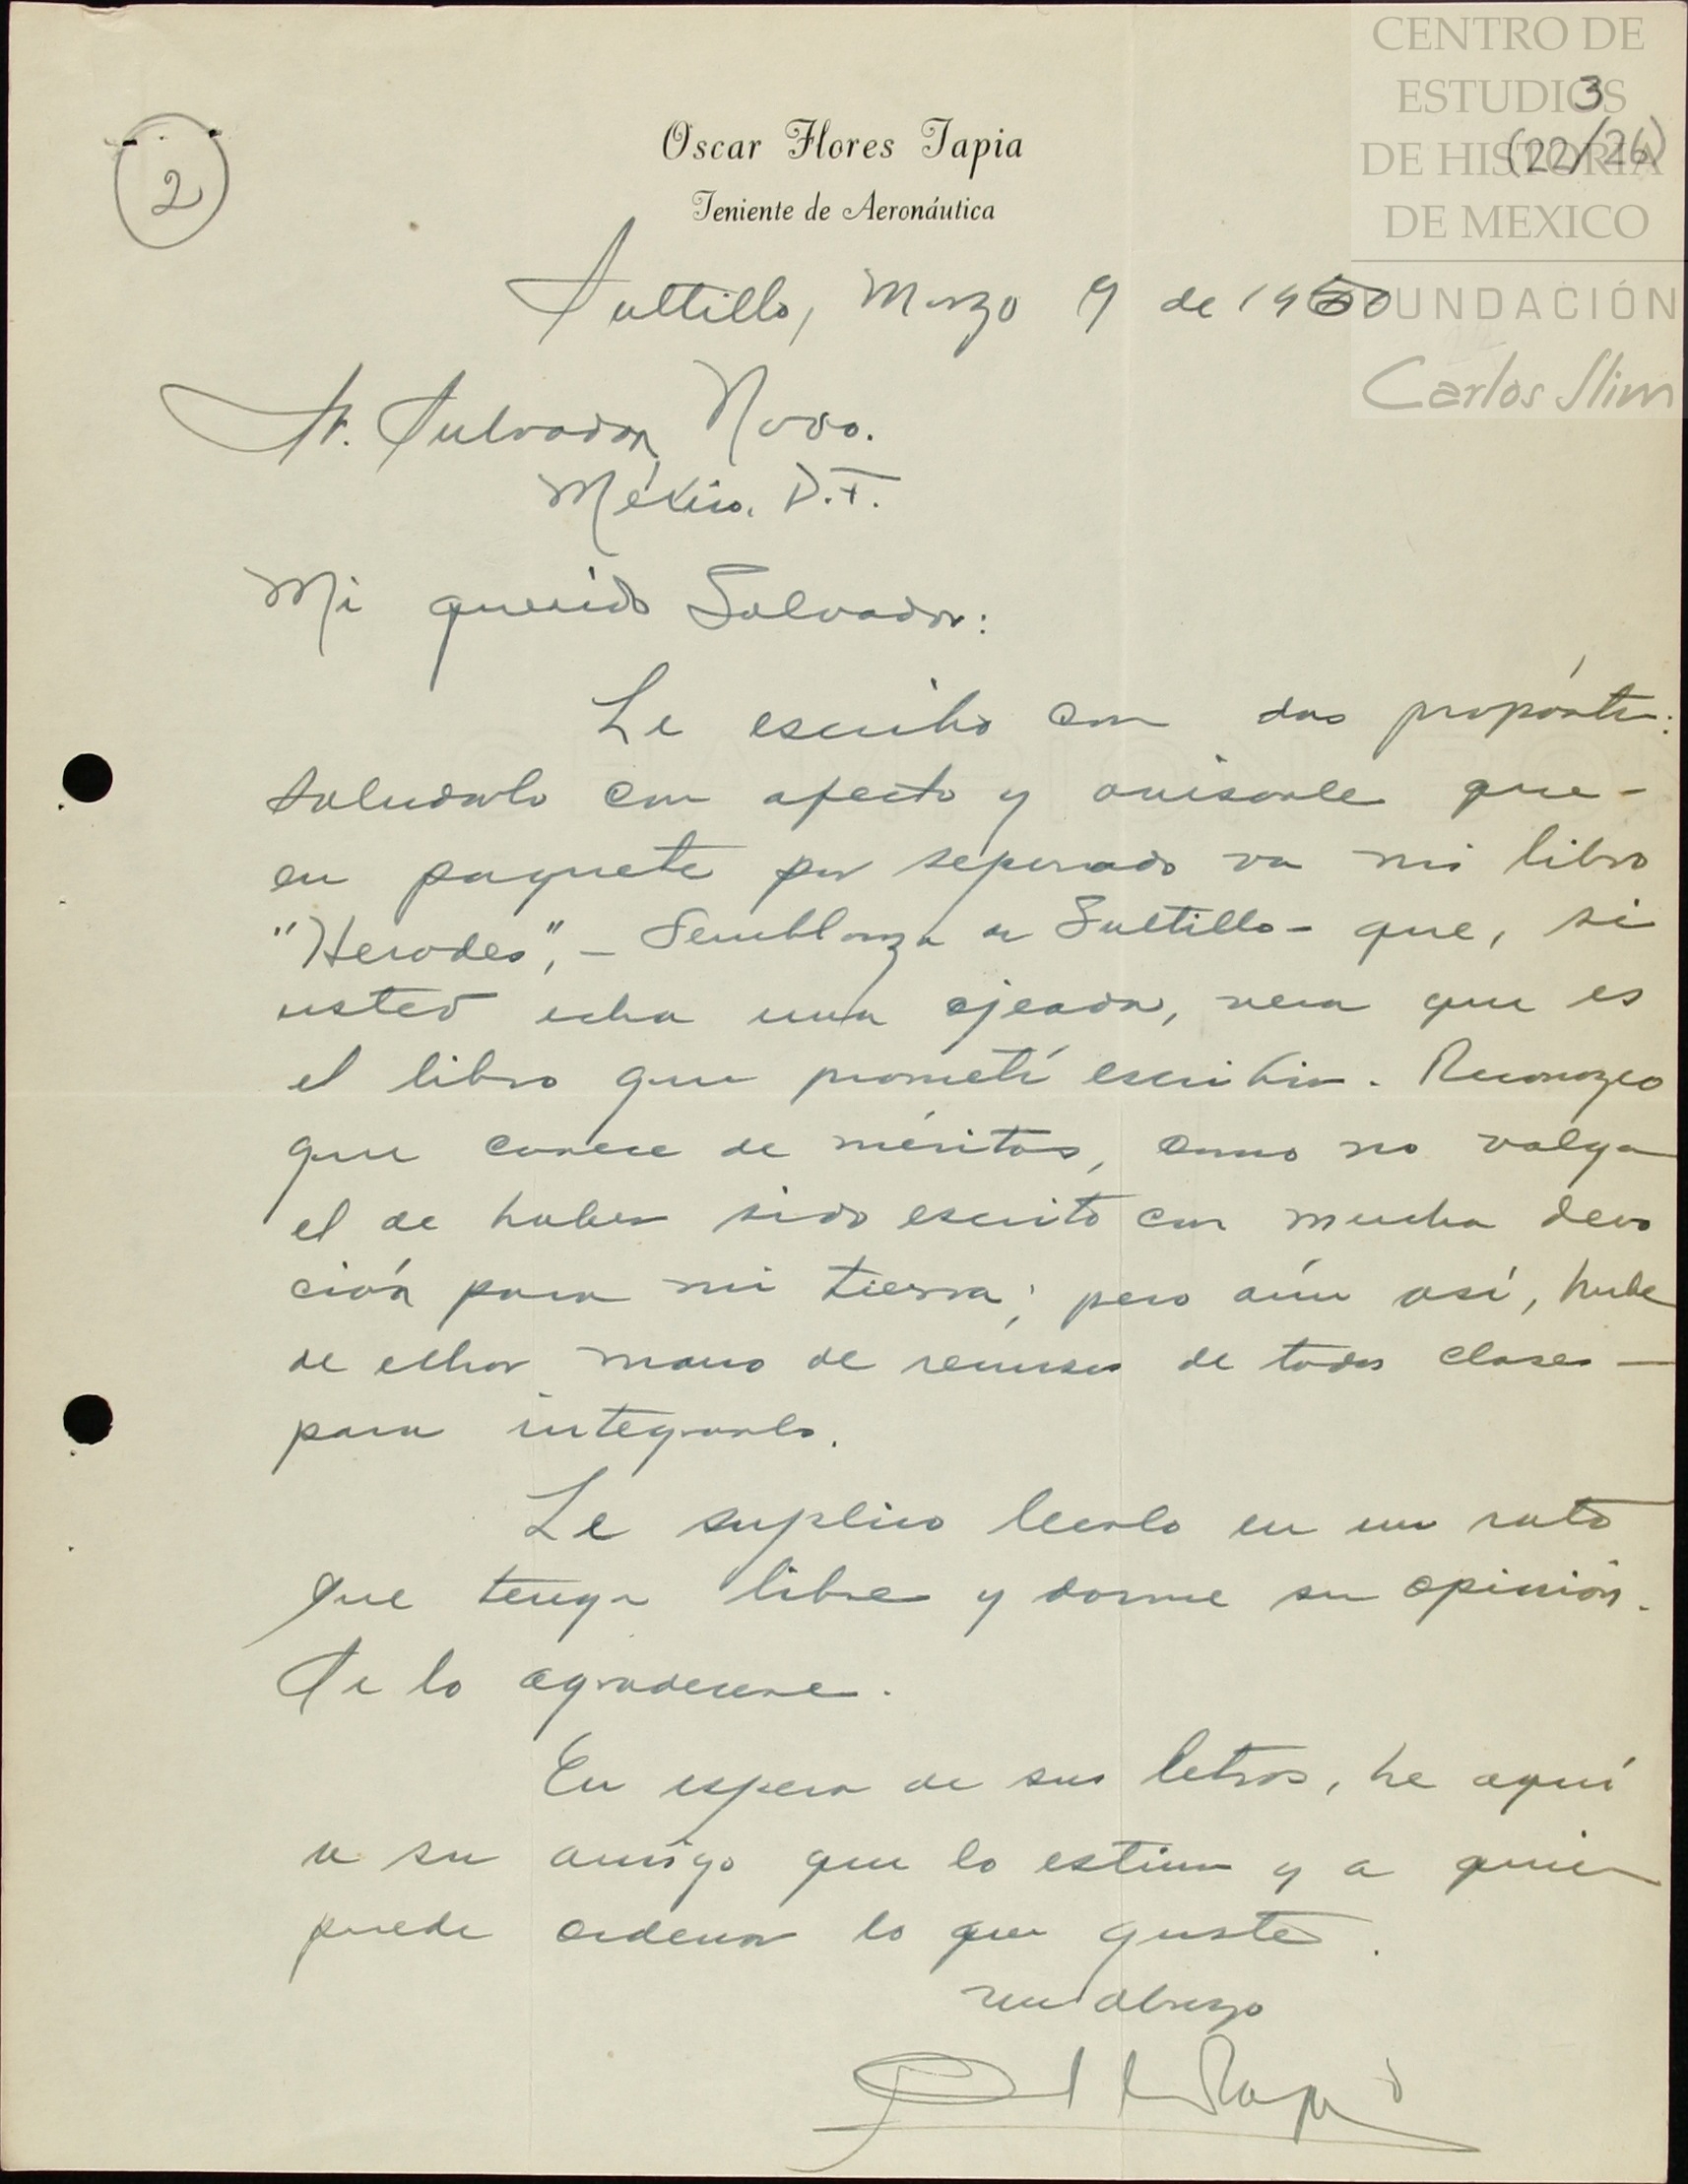 CENTRO DE
ESTUDIOS
DE HISTORIA
DE MEXICO
FUNDACIÓN
Carlos Slim
3
(22/26)
2
Oscar Flores Tapia
Teniente de Aeronáutica
Saltillo, Marzo 9 de 19
Sr. Salvador Novo.
México. D.F.
Mi querido Salvador:
Le escribo con dos propósitos:
saludarlo con afecto y avisarle que-
en paquete por separado va mi libro
"Herodes", - Semblanza de Saltillo - que, si
usted echa una ojeada, vera que es
el libro que prometí escribir. Reconozco
que carece de méritos, como no valga
el de haber sido escrito con mucha devo
ción para mi tierra; pero aún así, hube
de echar mano de recursos de todas clases —
para integrarlo.
Le suplico leerlo en un rato
que tenga libre y darme su opinión.
Se lo agradecere.
En espera de sus letras, he aquí
a su amigo que lo estima y a quien
puede ordenar lo que guste.
un abrazo